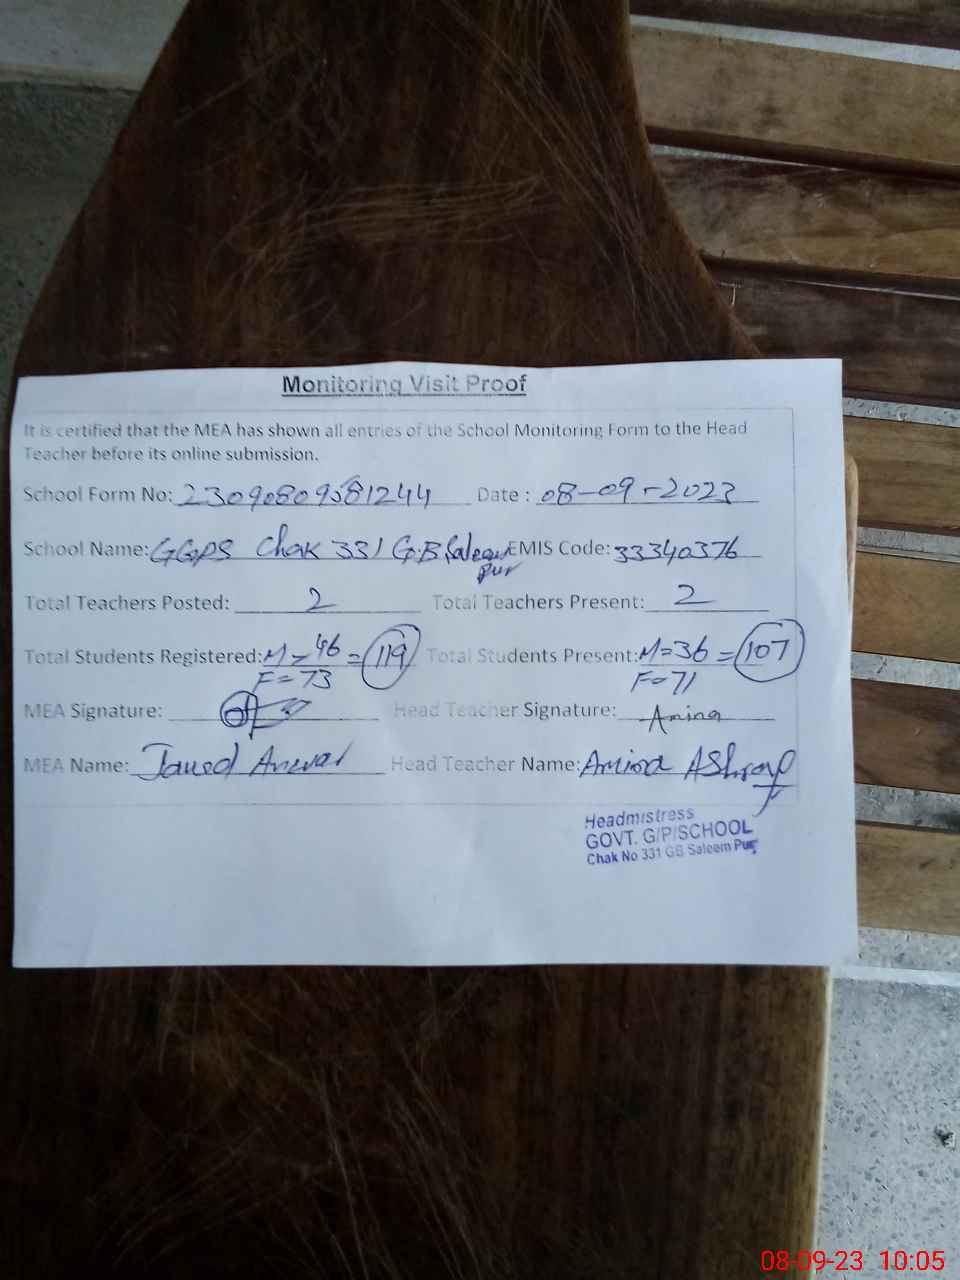 Monitoring Visit Proof
It is certified that the MEA has shown all entries of the School Monitoring Form to the Head
Teacher before its online submission.
School Form No: 23090809081244 Date : 08-09-2023
School Name: GGPS Chak 331 G.B Saleem EMIS Code: 33340376
Pur
Total Teachers Posted: 2 Total Teachers Present: 2
Total Students Registered: M - 46 = 119 Total Students Present: M = 36 = 107
F = 73 F = 71
MEA Signature: Head Teacher Signature: Amina
MEA Name: Javed Anwar Head Teacher Name: Amina AShraf
Headmistress
GOVT. G/P/SCHOOL
Chak No 331 GB Saleem Pur
08-09-23 10:05